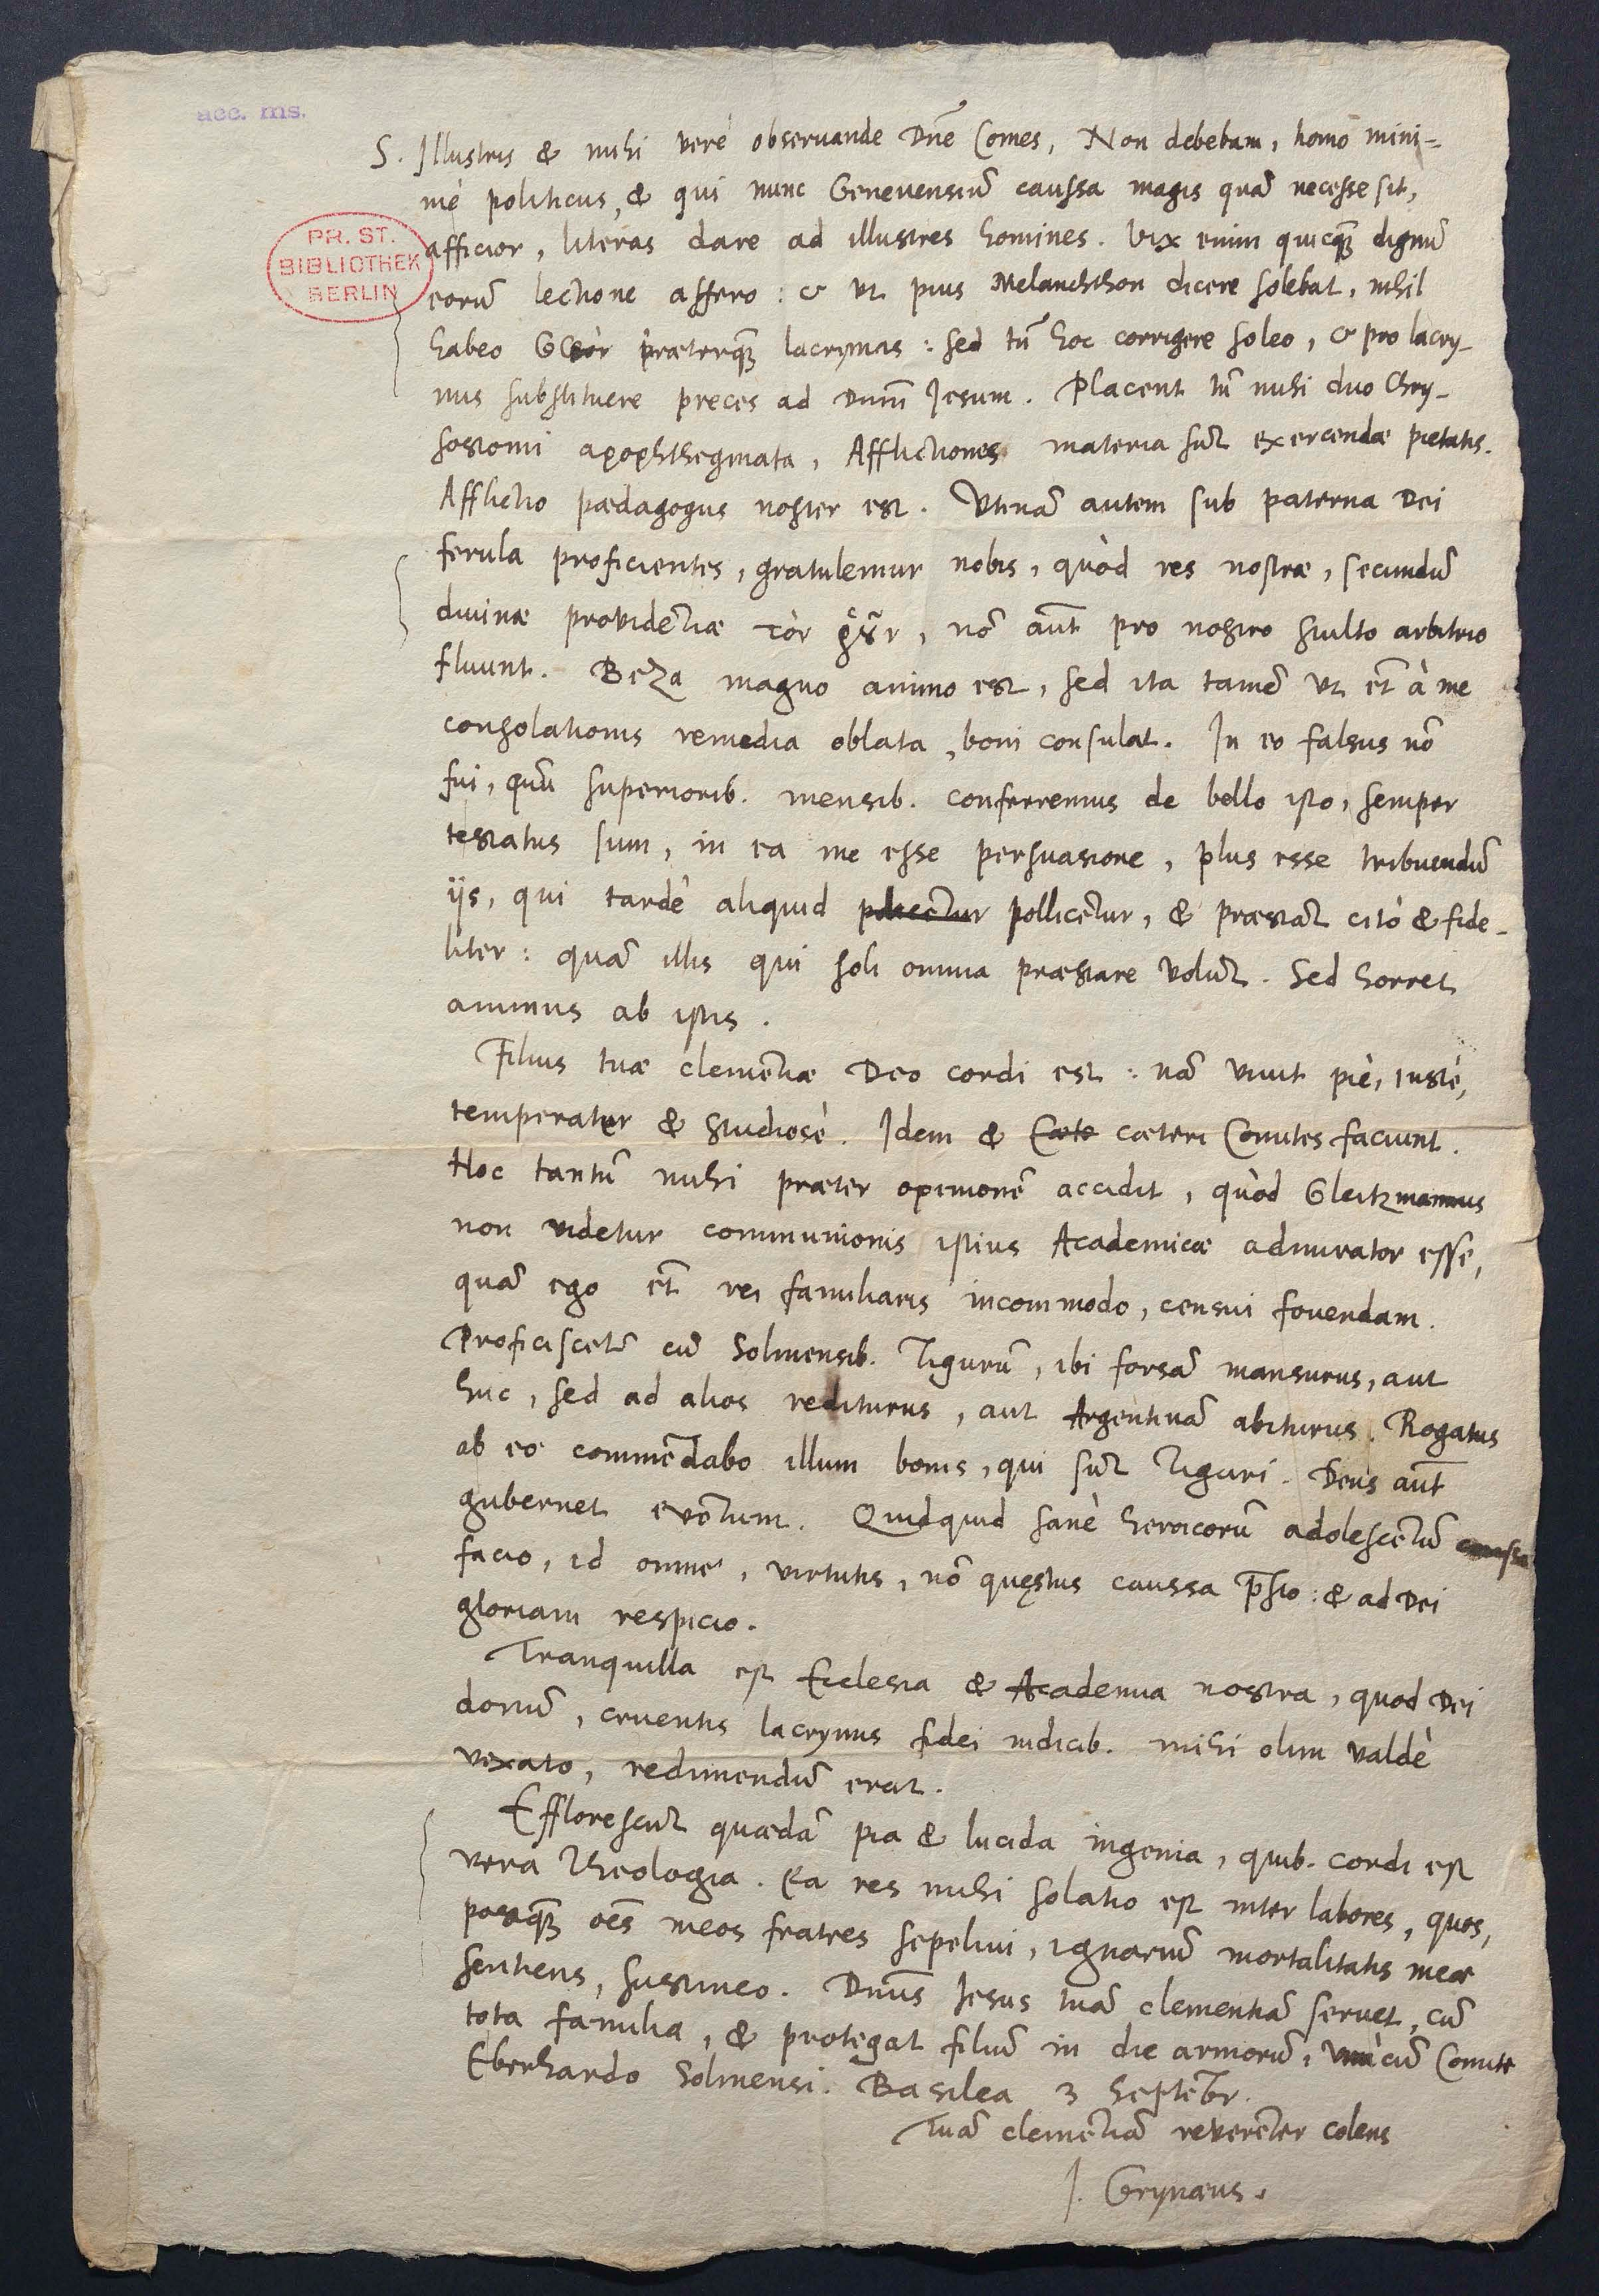 acc. ms.
PR. ST.
BIBLIOTHEK
BERLIN
S. Illustris & mihi verè observande Dn̄e Comes, Non debebam, homo mini=
mè politicus, & qui nunc Genevensiū caussa magis quā necesse sit,
afficior, literas dare ad illustres homines. Vix enim quicq̃ dignū
eorū lectione affero: & ut pius Melanchthon dicere solebat, nihil
habeo præterq̃ lacrymas: sed tn̄ hoc corrigere soleo, & pro lacry-
mis substituere preces ad Dnm̄ Jesum. Placent tn̄ mihi duo Chry-
sostomi apophthegmata, Afflictiones materia sūt exercendæ pietatis.
Afflictio pædagogus noster est. Utinā autem sub paterna Dei
ferula proficientes, gratulemur nobis, quòd res nostræ, secundū
divinæ providētiæ τὸν, nō aut̄ pro nostro stulto arbitrio
fluunt. Beza magno animo est, sed ita tamē ut et̄ à me
consolationis remedia oblata, boni consulat. In eo falsus nō
fui, quū superiorib. mensib. conferremus de bello isto, semper
testatus sum, in ea me esse persuasione, plus esse tribuendū
ijs, qui tardè aliquid pollicētur, & præstāt citò & fide-
liter: quā illis qui soli omnia præstare volūt. Sed horret
animus ab istis.
Filius tuæ clemētiæ Deo cordi est: nā vivit piè, iustè,
temperater & studiosè. Idem & cæteri Comites faciunt.
Hoc tantū mihi præter opinionē accidit, quòd Gleitzmannus
non videtur communionis istius Academicæ admirator esse,
quā ego et̄ rei familiaris incommodo, censui fovendam.
Proficiscetr̄ cū Solmensib. Tigurū, ibi forsā mansurus, aut
huc, sed ad alios rediturus, aut Argentinā abiturus. Rogatus
ab eo commēdabo illum bonis, qui sūt Tiguri. Deus aut̄
gubernet evētum. Quidquid sanè heroicorū adolescētū caussa
facio, id omne, virtutis, nō quęstus caussa p̄sto: & ad Dei
gloriam respicio.
Tranquilla est Ecclesia & Academia nostra, quod Dei
donū, cruentis lacrymis fidei indicib. mihi olim valdè
vexato, redimendū erat.
Efflorescūt quædā pia & lucida ingenia, quib. cordi est
vera Theologia. Ea res mihi solatio est inter labores, quos,
postq̃ oēs meos fratres sepelivi, ignarū mortalitatis meæ
sentiens, sustineo. Dnūs Jesus tuā clementiā servet, cū
tota familia, & protegat filiū in die armorū, unà cū Comite
Eberhardo Solmensi. Basilea 3 Septēbr.
Tuā clemētiā reverēter colens
J. Grynæus.